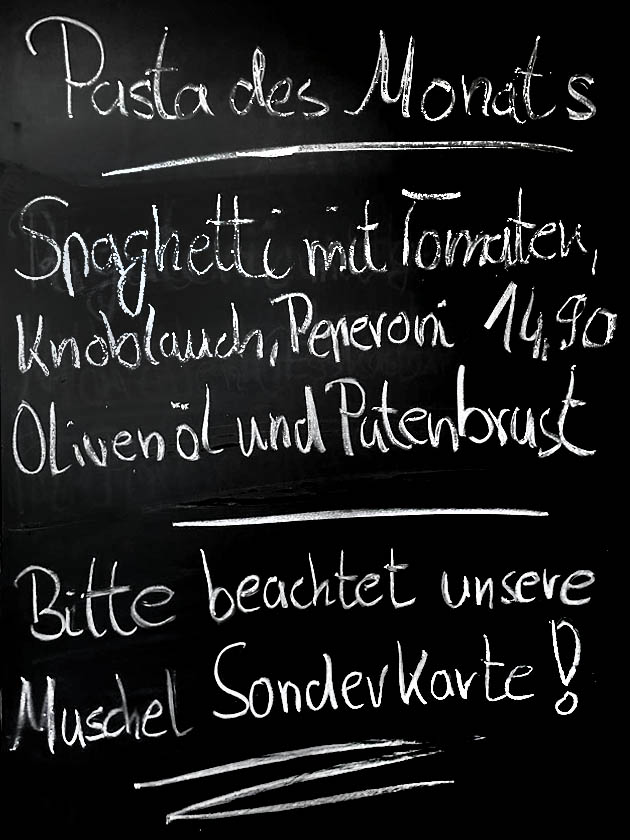 Pasta des Monats
Spaghetti mit Tomaten,
Knoblauch, Peperoni 14,90
Olivenöl und Putenbrust
Bitte beachtet unsere
Muschel Sonderkarte!